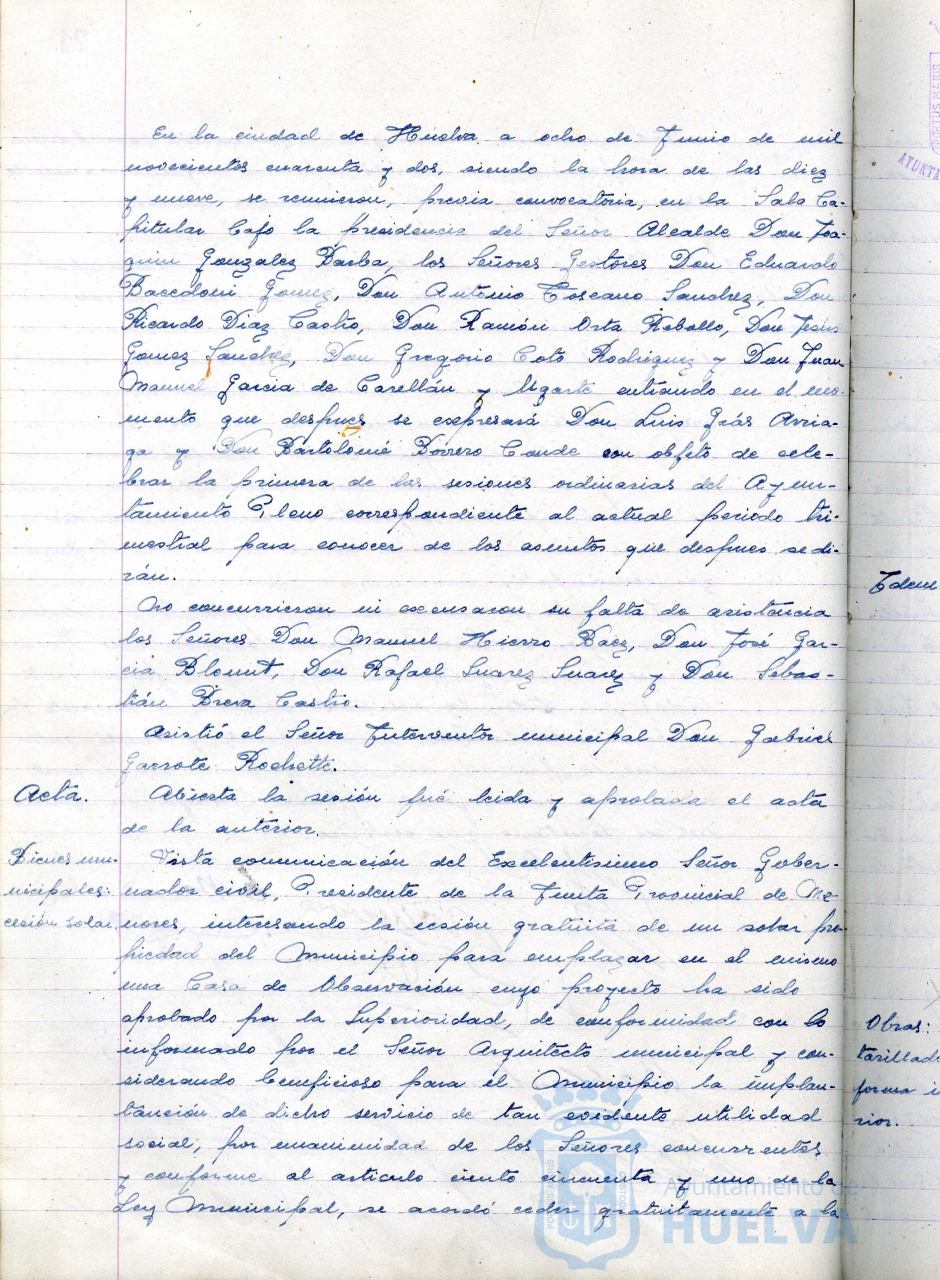 En la ciudad de Huelva a ocho de Junio de mil
novecientos cuarenta y dos, siendo la hora de las diez
y nueve, se reunieron, previa convocatoria, en la Sala Ca-
pitular bajo la presidencia del Señor Alcalde Don Joa-
quin Gonzalez Barba, los Señores Gestores Don Eduardo
Bacedoni Gomez, Don Antonio Toscano Sanchez, Don
Ricardo Diaz Castro, Don Ramón Orta Rebollo, Don Jesús
Gomez Sanchez, Don Gregorio Coto Rodriguez y Don Juan
Manuel Garcia de Carellán y Ugarte entrando en el mo-
mento que despues se expresará Don Luis Grás Arria-
ga y Don Bartolomé Borrero Conde con objeto de cele-
brar la primera de las sesiones ordinarias del Ayun-
tamiento Pleno correspondiente al actual periodo tri-
mestral para conocer de los asuntos que despues se di-
rán.
No concurrieron ni excusaron su falta de asistencia
los Señores Don Manuel Hierro Baez, Don José Gar-
cia Blount, Don Rafael Suarez Suarez y Don Sebas-
tián Breva Castro.
Asistió el Señor Interventor municipal Don Gabriel
Garrote Rochette.
Acta. Abierta la sesión fué leida y aprobada el acta
de la anterior.
Bienes mu-
nicipales:
cesión solar.
Vista comunicación del Excelentisimo Señor Gober-
nador civil, Presidente de la Junta Provincial de Me-
nores, interesando la cesión gratuita de un solar pro-
piedad del Municipio para emplazar en el mismo
una Casa de Observación cuyo proyecto ha sido
aprobado por la Superioridad, de conformidad con lo
informado por el Señor Arquitecto municipal y con-
siderando beneficioso para el Municipio la implan-
tanción de dicho servicio de tan evidente utilidad
social, por unanimidad de los Señores concurrentes
y conforme al articulo ciento cincuenta y uno de la
Ley Municipal, se acordó ceder gratuitamente a la
Idem
Obras:
forma i
rior.
Ayuntamiento de
HUELVA